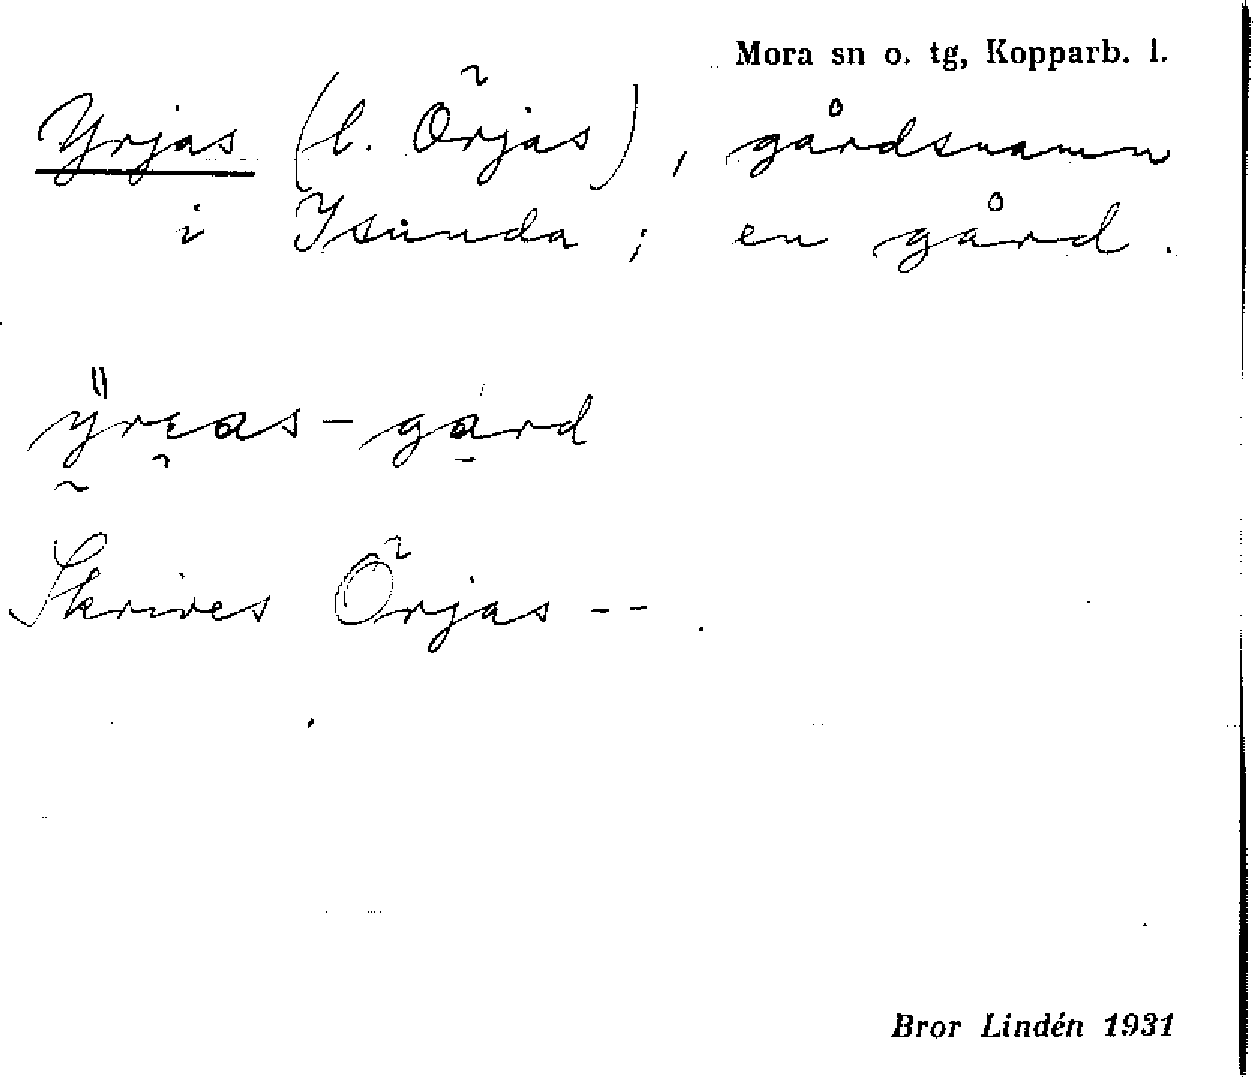 Mora sn o. tg, Kopparb. l.
Yrjas (l. Örjas), gårdsnamn
i Isunda; en gård.
yreas-gård
Skrives Örjas --
Bror Lindén 1931